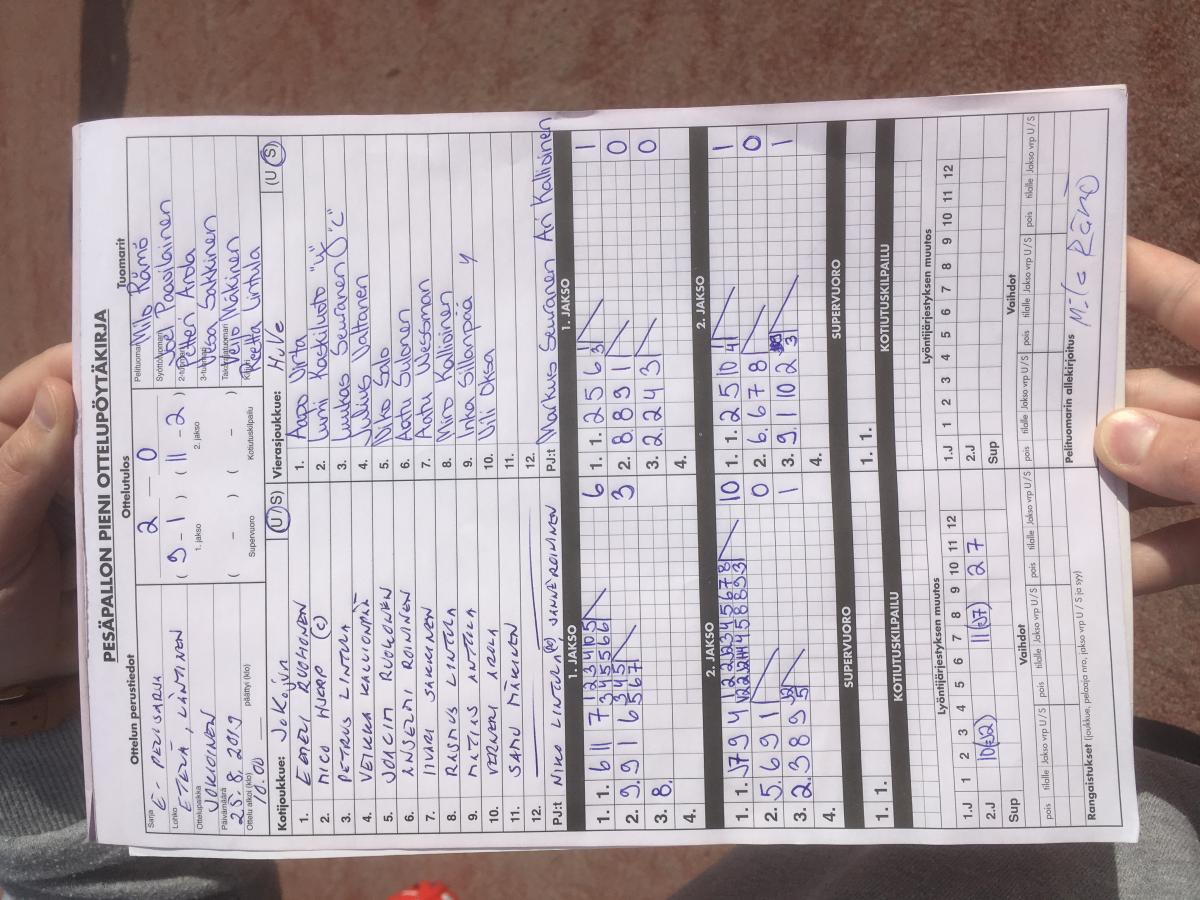 PESÄPALLON PIENI OTTELUPÖYTÄKIRJA
Ottelun perustiedot
Sarja E-POJISARJA
Lohko ETELÄ, LÄNTINEN
Ottelupaikka JOKIOINEN
Päivämäärä 25.8.2019
Ottelu alkoi (klo) 10.00 päättyi (klo)
Ottelutulos
2 – 0
( 9 – 1 ) ( 11 – 2 )
1. jakso 2. jakso
( – ) ( – )
Supervuoro Kotiutuskilpailu
Tuomarit
Pelituomari Milo Rämö
Syöttötuomari Joel Paavilainen
2-tuomari Petteri Anola
3-tuomari Sakkinen
Takatuomari Mäkinen
Kirjuri Reetta Lintula
Kotijoukkue: JoKoJyn (U/S)
1. EEMELI RUOHONEN
2. NICO HURPO (C)
3. PETRUS LINTULA
4. VEIKKA KALLIONPÄÄ
5. JOACIM RUOHONEN
6. ANSELMI ROININEN
7. IIVARI SAKKINEN
8. RASMUS LINTULA
9. MATIAS ANTULA
10. VERNERI AROLA
11. SAMU MÄKINEN
12.
PJ:t NIKO LINTULA JANNE ROININEN
Vierasjoukkue: HuVe (U/S)
1. Aapo Virta
2. Lumi Koskiluoto "y"
3. Luukas Seuranen "C"
4. Julius Valtanen
5. Niko Salo
6. Aatu Sulonen
7. Aatu Wessman
8. Miro Kallioinen
9. Inka Sillanpää y
10. Vili Oksa
11.
12.
PJ:t Markus Seuranen Ari Kallioinen
1. JAKSO
1. 1. 6 11 7 6
2. 9. 9 1 6 3
3. 8.
4.
1. JAKSO
1. 1. 2 5 6 3 1
2. 8. 8 9 1 0
3. 2. 2 4 3 0
4.
2. JAKSO
1. 1. 10
2. 5. 6 9 1 0
3. 2. 3 8 9 1
4.
2. JAKSO
1. 1. 2 5 10 4 1
2. 6. 6 7 8 0
3. 9. 1 10 2 3 1
4.
SUPERVUORO
1. 1.
SUPERVUORO
1. 1.
KOTIUTUSKILPAILU
1. 1.
KOTIUTUSKILPAILU
1. 1.
Lyöntijärjestyksen muutos
1 2 3 4 5 6 7 8 9 10 11 12
1.J
2.J 2 7
Sup
Lyöntijärjestyksen muutos
1 2 3 4 5 6 7 8 9 10 11 12
1.J
2.J
Sup
Vaihdot
pois tilalle Jakso vrp U/S pois tilalle Jakso vrp U/S pois tilalle Jakso vrp U/S
Vaihdot
pois tilalle Jakso vrp U/S pois tilalle Jakso vrp U/S pois tilalle Jakso vrp U/S
Rangaistukset (joukkue, pelaaja nro, jakso vrp U/S ja syy)
Pelituomarin allekirjoitus
Milo Rämö